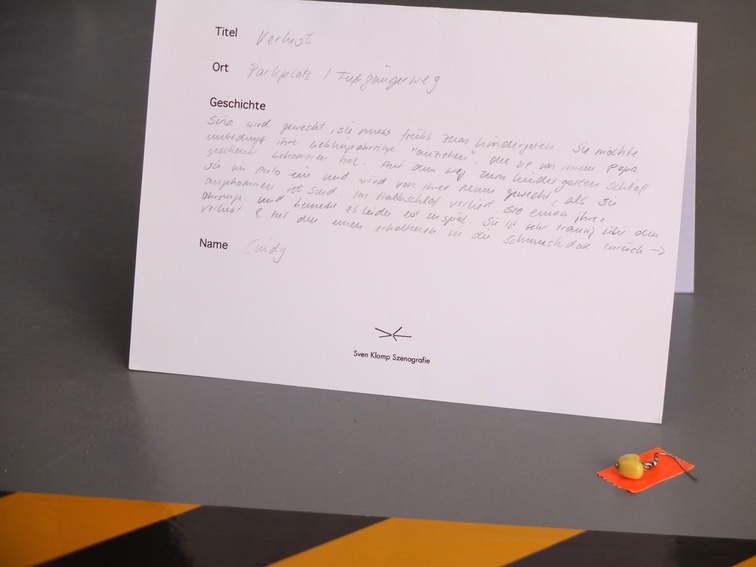 Titel Verlust
Ort Parkplatz / Fußgängerweg
Geschichte
Sina wird geweckt, sie muss früh zum Kindergarten. Sie möchte
unbedingt ihre Lieblingsohrringe "anziehen", die sie von ihrem Papa
geschenkt bekommen hat. Auf dem Weg zum Kindergarten schläft
sie im Auto ein und wird von ihrer Mama geweckt, als sie
angekommen sind. Im Halbschlaf verliert sie einen ihrer
Ohrringe und bemerkt es leider erst zu spät. Sie ist sehr traurig über den
Verlust & tut den einen erhaltenen in die Schmuckdose zurück →
Name Cindy
Sven Klomp Szenografie